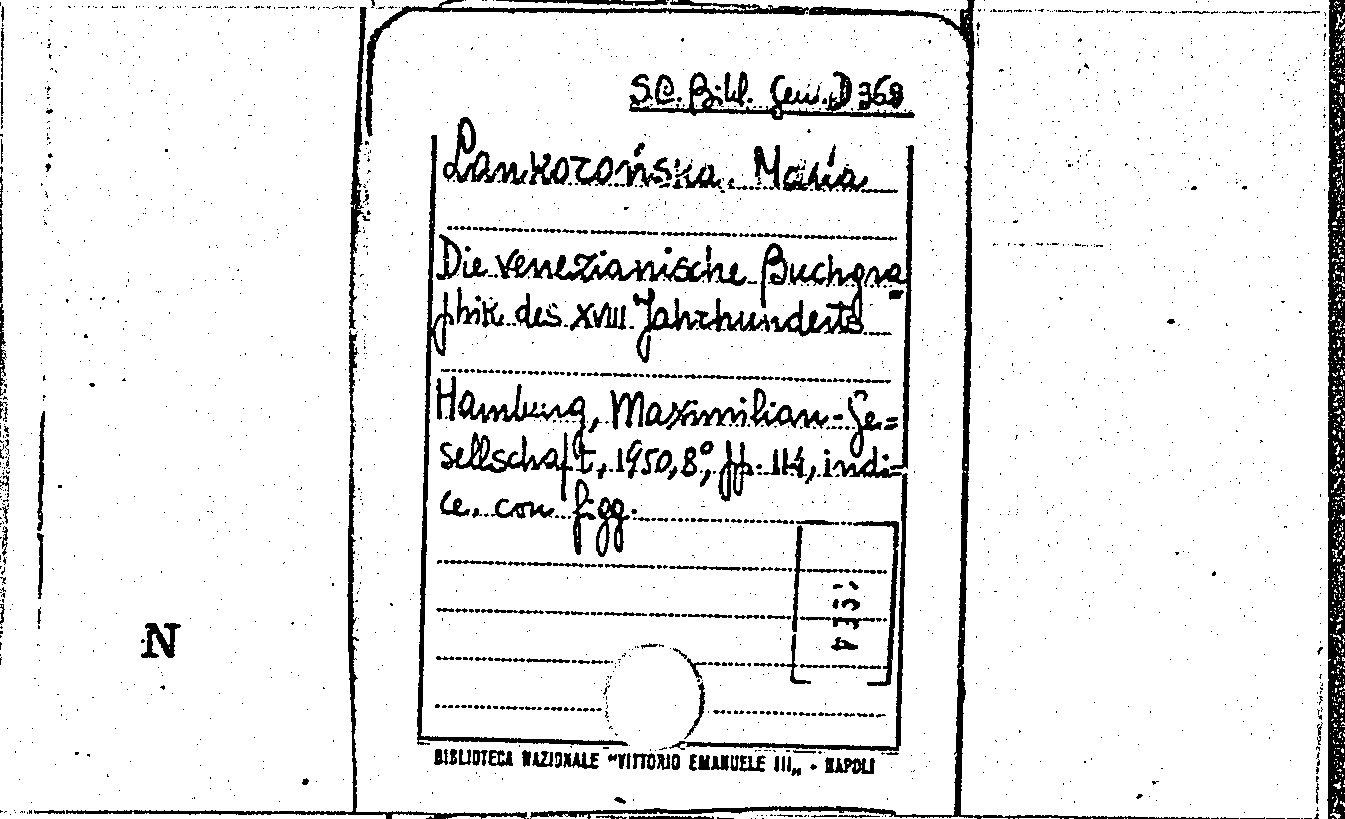 S.C. Bibl. Gen. D 368
Lankorońska. Maria
Die venezianische Buchgra=
phik des XVIII Jahrhunderts
Hamburg, Maximilian-Ge=
sellschaft, 1950, 8°, pp. 114, indi=
ce. con figg.
N
BIBLIOTECA NAZIONALE "VITTORIO EMANUELE III„ - NAPOLI